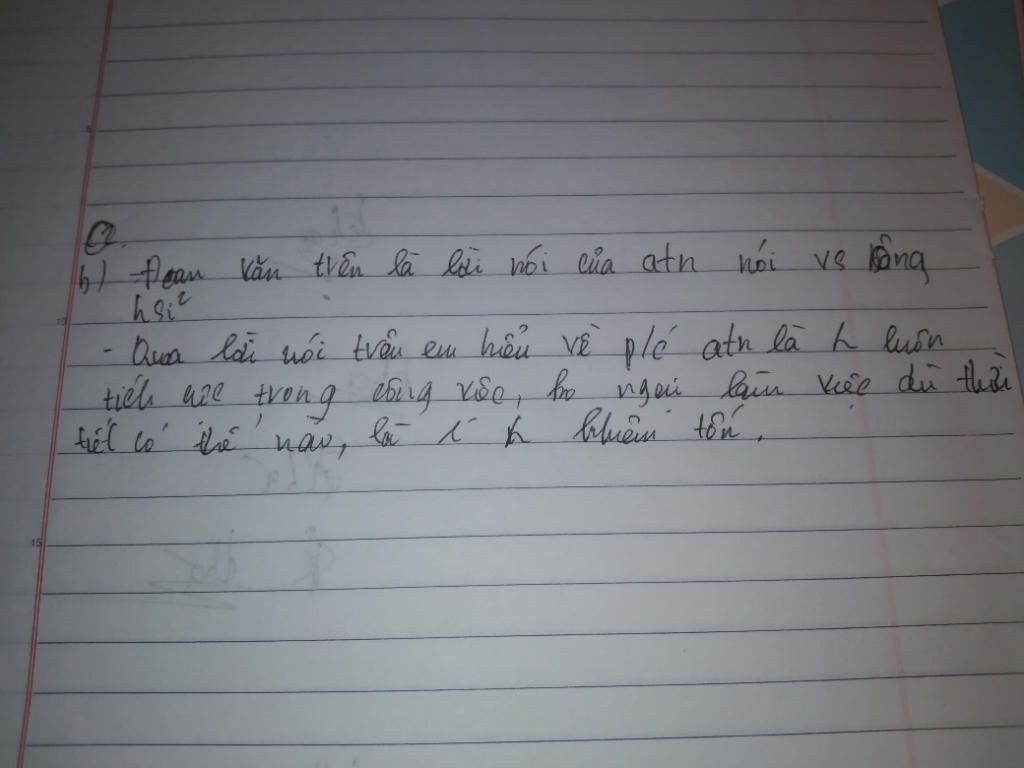 b) Đoạn văn trên là lời nói của atn nói vs ông
hsi²
- Qua lời nói trên em hiểu về p/c atn là h luôn
tích cực trong công vộc, ko ngại làm việc dù thời
tiết có thế nào, là 1 h khiêm tốn.